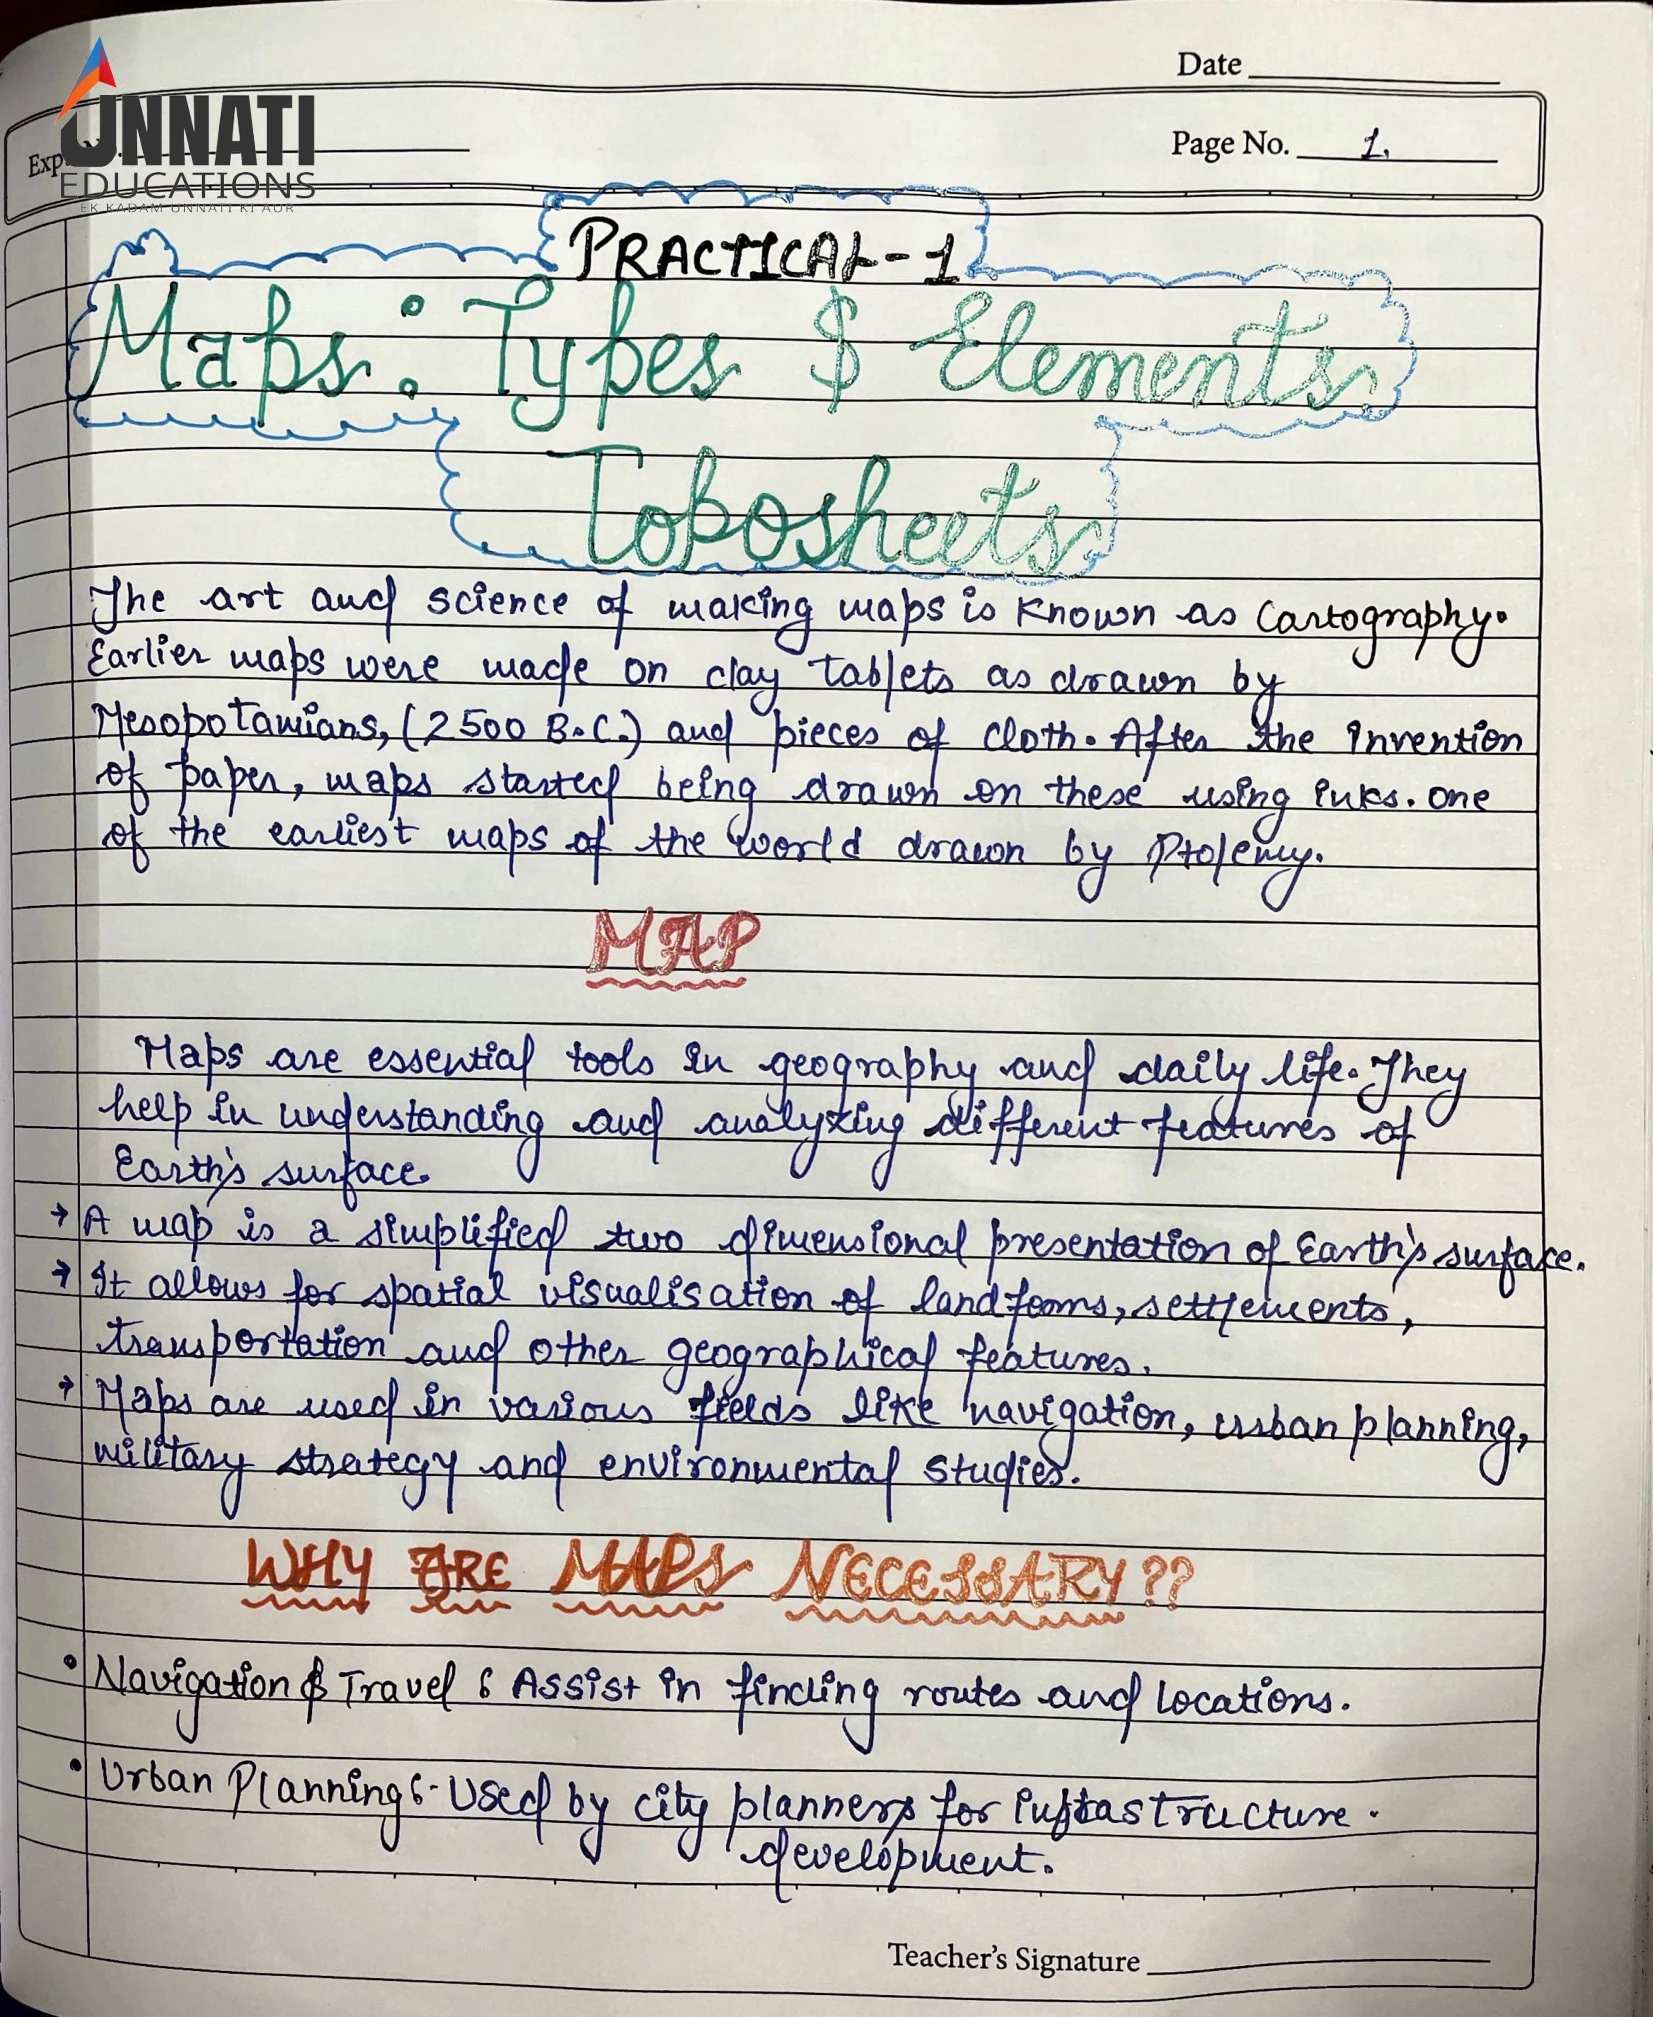 UNNATI
EDUCATIONS
EK KADAM UNNATI KI AUR
Date
Page No. 1.
PRACTICAL-1
Maps: Types & Elements
Toposheets
The art and science of making maps is known as Cartography.
Earlier maps were made on clay tablets as drawn by
Mesopotamians, (2500 B.C.) and pieces of cloth. After the invention
of paper, maps started being drawn on these using inks. One
of the earliest maps of the world drawn by Ptolemy.
MAP
Maps are essential tools in geography and daily life. They
help in understanding and analyzing different features of
Earth's surface.
→ A map is a simplified two dimensional presentation of Earth's surface.
→ It allows for spatial visualisation of landforms, settlements,
transportation and other geographical features.
→ Maps are used in various fields like navigation, urban planning,
military strategy and environmental studies.
WHY ARE MAPS NECESSARY??
• Navigation & Travel : Assist in finding routes and locations.
• Urban Planning :- Used by city planners for infrastructure
development.
Teacher's Signature